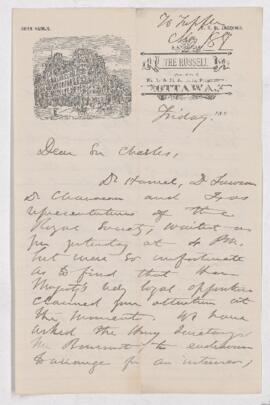 To Tupper
May 1887
THE RUSSELL
OTTAWA,
Friday 188
Dear Sir Charles,
Dr Hamel, Dr Lawson
Dr and I as
representatives of the
Royal Society, waited on
you yesterday at 4 PM.
but were so unfortunate
as to find that Her
Majesty's loyal opposition
claimed your attention at
the moment. We have
asked the Hony Secretary
Mr Bourinot to endeavour
to arrange for an interview,